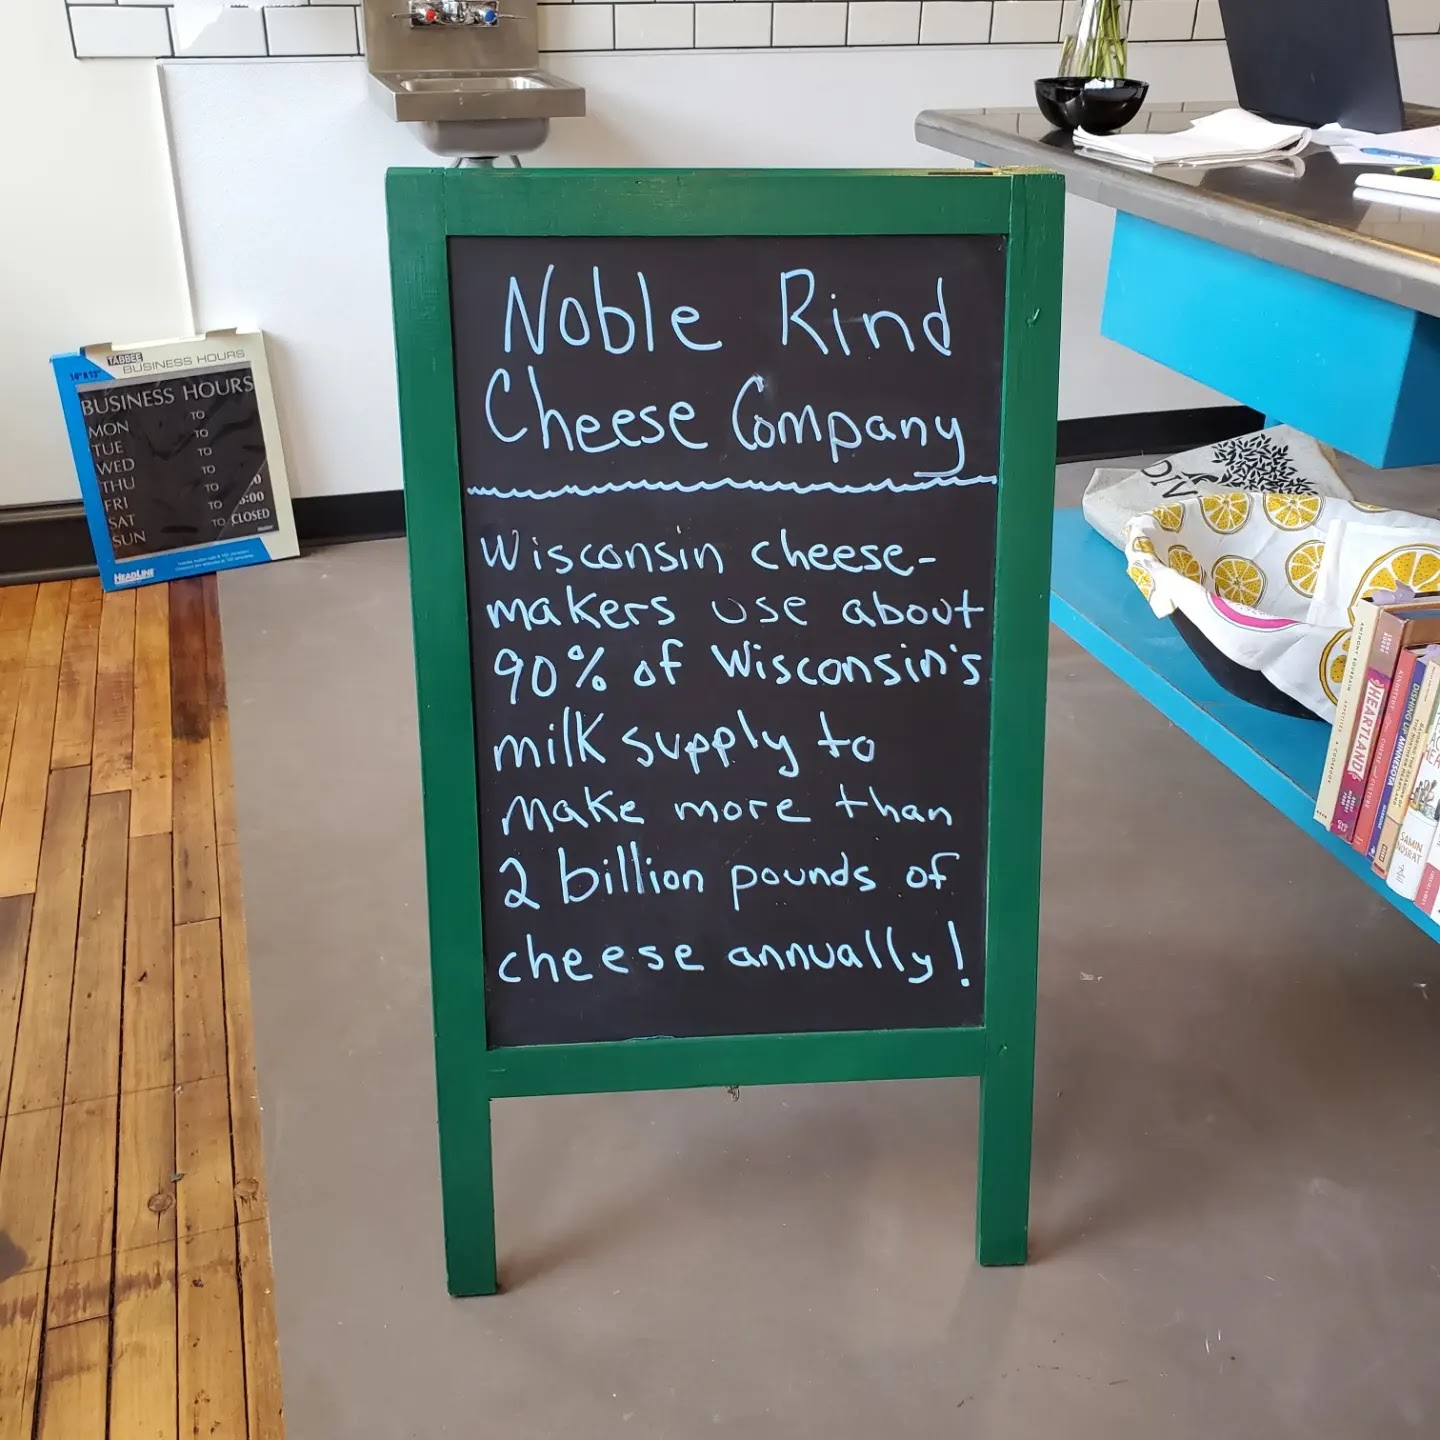 Noble Rind
Cheese Company
Wisconsin cheese-
makers use about
90% of Wisconsin's
milk supply to
make more than
2 billion pounds of
cheese annually!
14" X 13"
TABBEE
BUSINESS HOURS
BUSINESS HOURS
TO
MON TO
TUE TO
WED TO
THU TO
FRI TO
SAT TO CLOSED
SUN
HEADLINE
HEARTLAND
DISHING UP MINNESOTA
SAMIN
NOSRAT